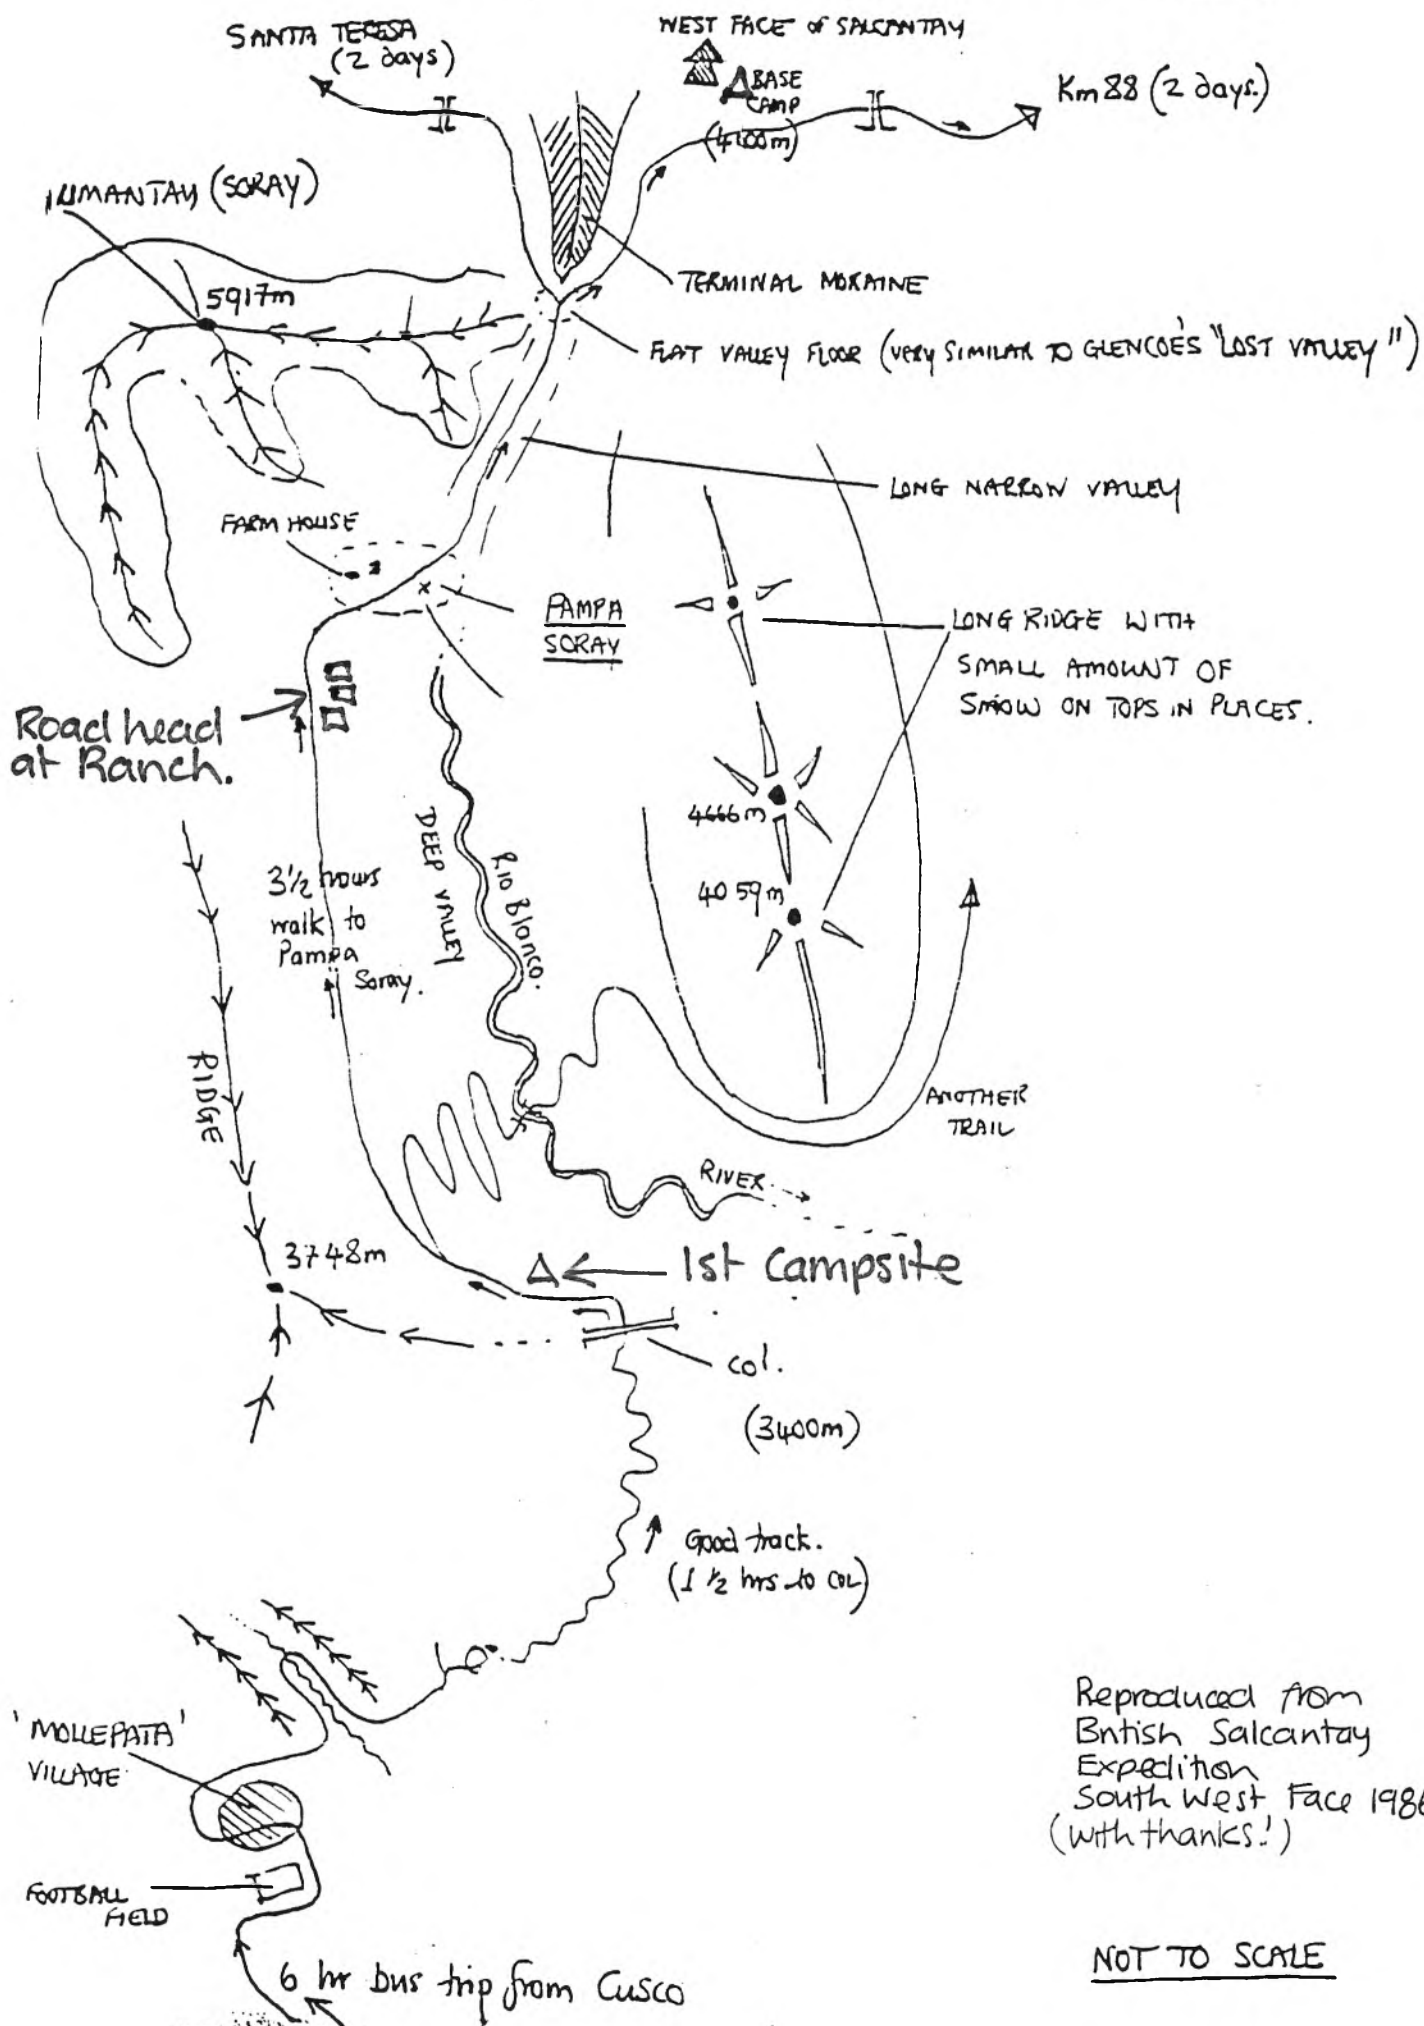 SANTA TERESA
(2 days)
WEST FACE of SALCANTAY
BASE
CAMP
(4100m)
Km 88 (2 days.)
HUMANTAY (SORAY)
5917m
TERMINAL MORAINE
FLAT VALLEY FLOOR (VERY SIMILAR TO GLENCOE'S "LOST VALLEY")
LONG NARROW VALLEY
FARM HOUSE
PAMPA
SORAY
LONG RIDGE WITH
SMALL AMOUNT OF
SNOW ON TOPS IN PLACES.
Road head
at Ranch.
4666m
4059m
3½ hours
walk to
Pampa
Soray.
DEEP VALLEY
RIO Blanco.
RIDGE
ANOTHER
TRAIL
RIVER
3748m
1st Campsite
col.
(3400m)
Good track.
(1 ½ hrs to COL)
'MOLLEPATA'
VILLAGE
FOOTBALL
FIELD
6 hr bus trip from Cusco
Reproduced from
British Salcantay
Expedition
South West Face 1986
(with thanks!)
NOT TO SCALE